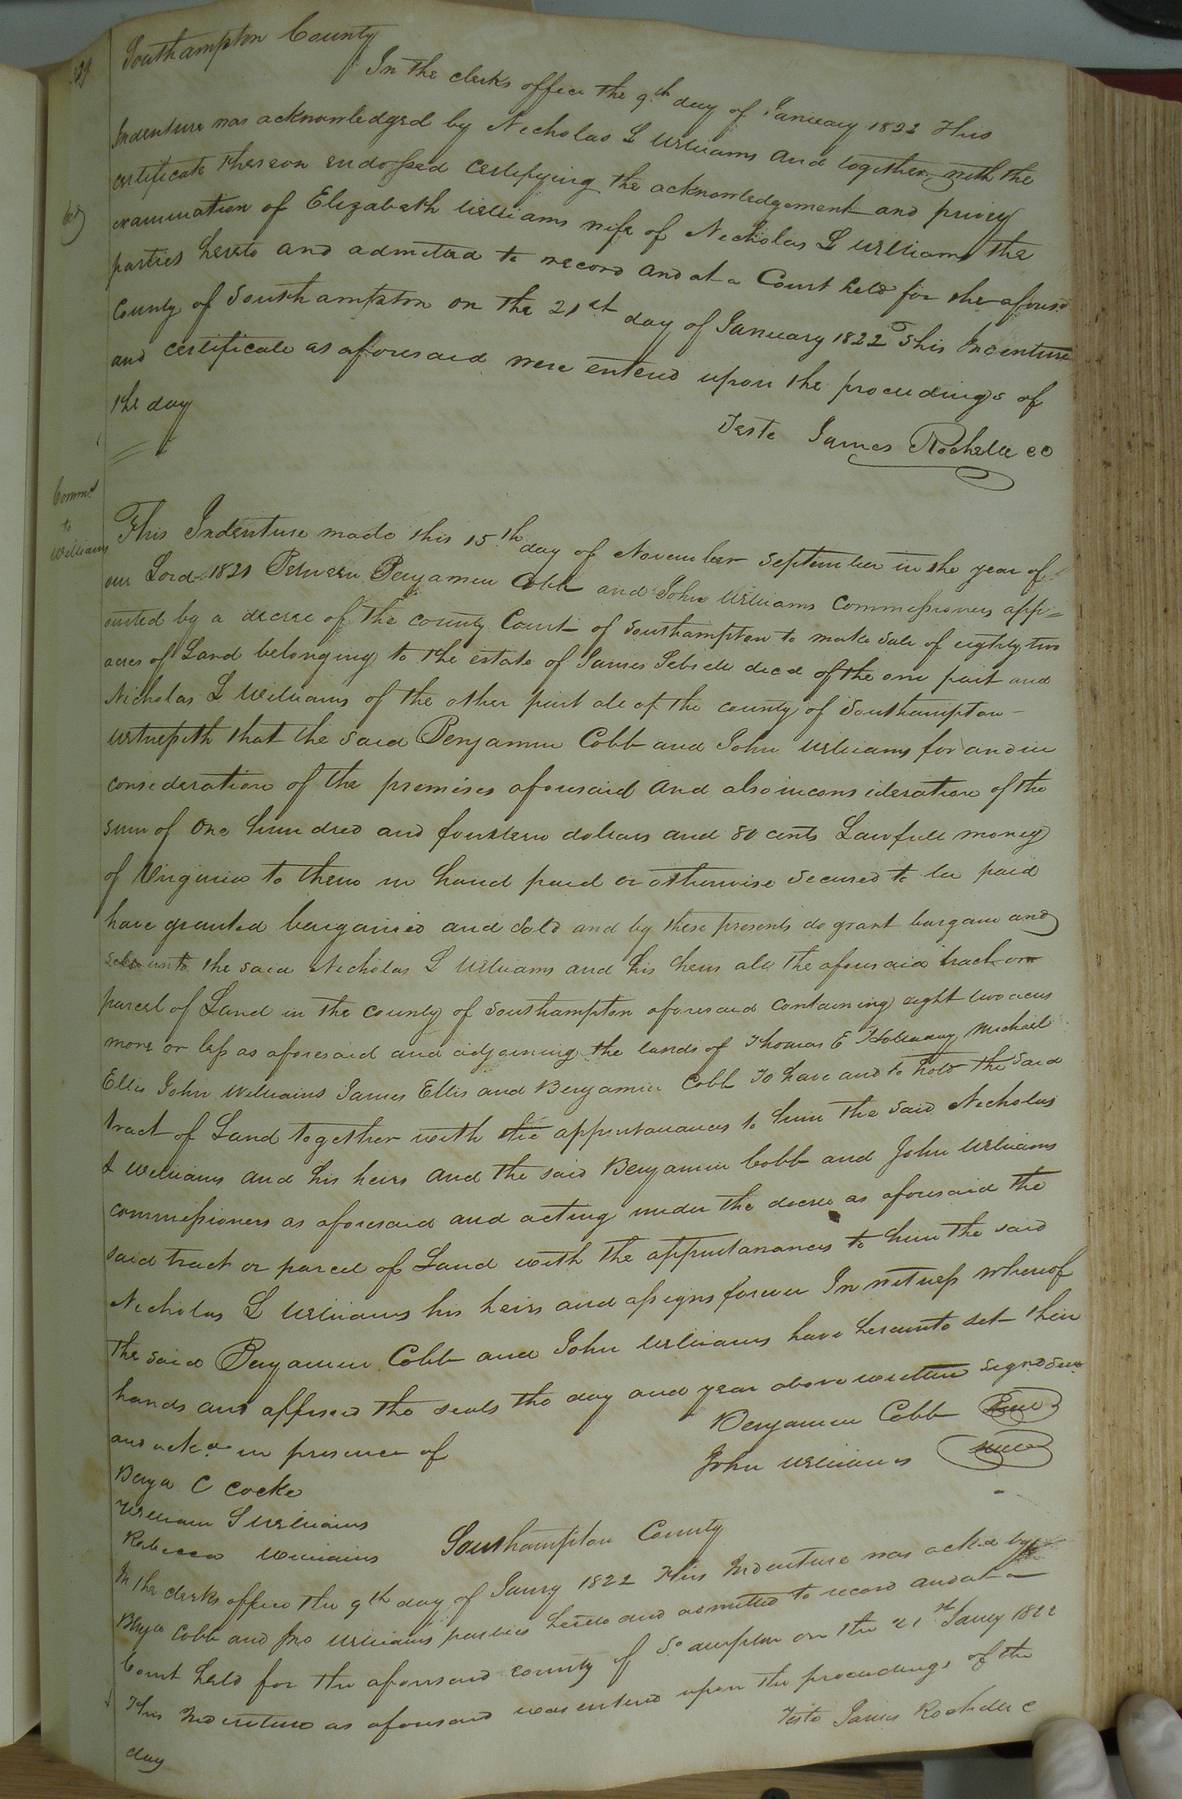 Southampton County
In the clerks office the 9th day of January 1822 This
Indenture was acknowledged by Nicholas L Williams and together with the
certificate thereon endorsed certifying the acknowledgement and privey
examination of Elizabeth Williams wife of Nicholas L Williams the
parties hereto and admitted to record and at a Court held for the aforesd
County of Southampton on the 21st day of January 1822 This Indenture
and certificate as aforesaid were entered upon the proceedings of
the day
Teste James Rochelle CC
Commrs
to
Williams
This Indenture made this 15th day of November September in the year of
our Lord 1821 Between Benjamin Cobb and John Williams Commissioners app=
ointed by a decree of the county Court of Southampton to make Sale of eighty two
acres of Land belonging to the estate of James decd of the one part and
Nicholas L Williams of the other part all of the county of Southampton
witnesseth that the said Benjamin Cobb and John Williams for and in
consideration of the premises aforesaid and also in consideration of the
sum of One hundred and fourteen dollars and 80 cents Lawfull money
of Virginia to them in hand paid or otherwise secured to be paid
have granted bargained and sold and by these presents do grant bargain and
sell unto the said Nicholas L Williams and his heirs all the aforesaid tract or
parcel of Land in the county of Southampton aforesaid containing eight two acres
more or less as aforesaid and adjoining the lands of Thomas E Holleway Michael
Ellis John Williams James Ellis and Benjamin Cobb To have and to hold the said
tract of Land together with the appurtanances to him the said Nicholas
L Williams and his heirs and the said Benjamin Cobb and John Williams
commissioners as aforesaid and acting under the decree as aforesaid the
said tract or parcel of Land with the appurtanances to him the said
Nicholas L Williams his heirs and assigns forever In witness whereof
the said Benjamin Cobb and John Williams have hereunto set their
hands and affixed the seals the day and year above written signd
and ackd in presence of
Benjamin Cobb Seal
John Williams Seal
Benja C Cocke
William S Williams
Rebecca Williams
Southampton County
In the clerks office the 9th day of Janry 1822 This Indenture was ackd by
Benja Cobb and Jno Williams parties hereto and admitted to record and at a
Court held for the aforesaid county of So ampton on the 21st Janry 1822
This Indenture as aforesaid was entered upon the proceedings of the
day
Teste James Rochelle C